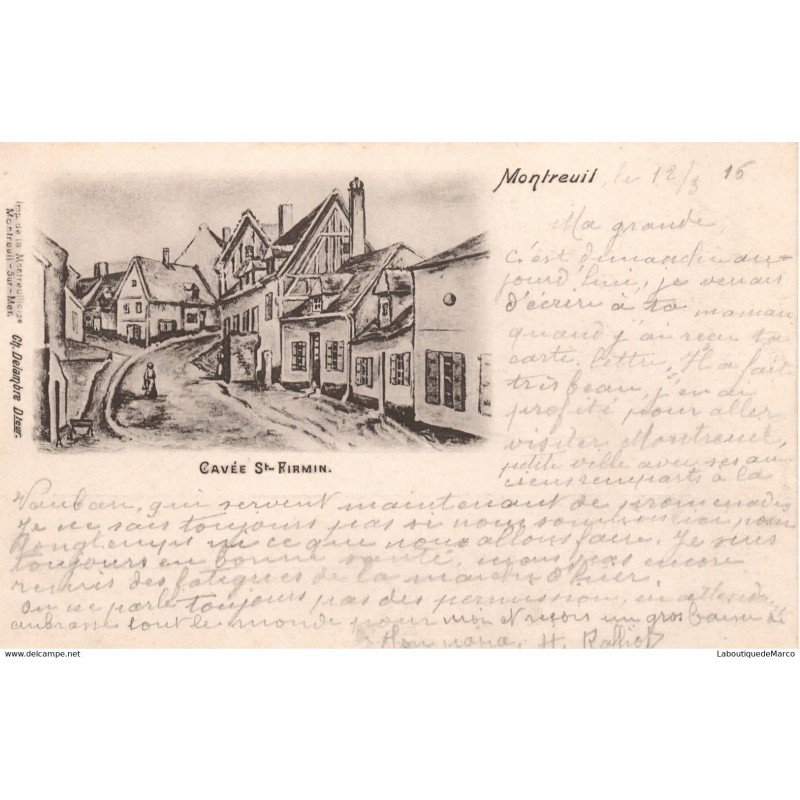 Montreuil, le 12/3 16
Ma grande,
C'est dimanche au-
jourd'hui, je venais
d'écrire à ta maman
quand j'ai reçu ta
carte lettre. Il a fait
très beau, j'en ai
profité pour aller
visiter Montreuil,
petite ville avec ses an
ciens remparts à la
Vauban, qui servent maintenant de promenades
Je ne sais toujours pas si nous sommes ici pour
longtemps ni ce que nous allons faire. Je suis
toujours en bonne santé, mais pas encore
remis des fatigues de la marche d'hier.
On ne parle toujours pas des permissions, en attend.
embrasse tout le monde pour moi et reçois un gros baiser de
Ton papa, H.
Cavée St-Firmin.
Imp. de la Montreuilloise
Montreuil-sur-Mer.
Ch. Delambre Dteur.
www.delcampe.net
LaboutiquedeMarco